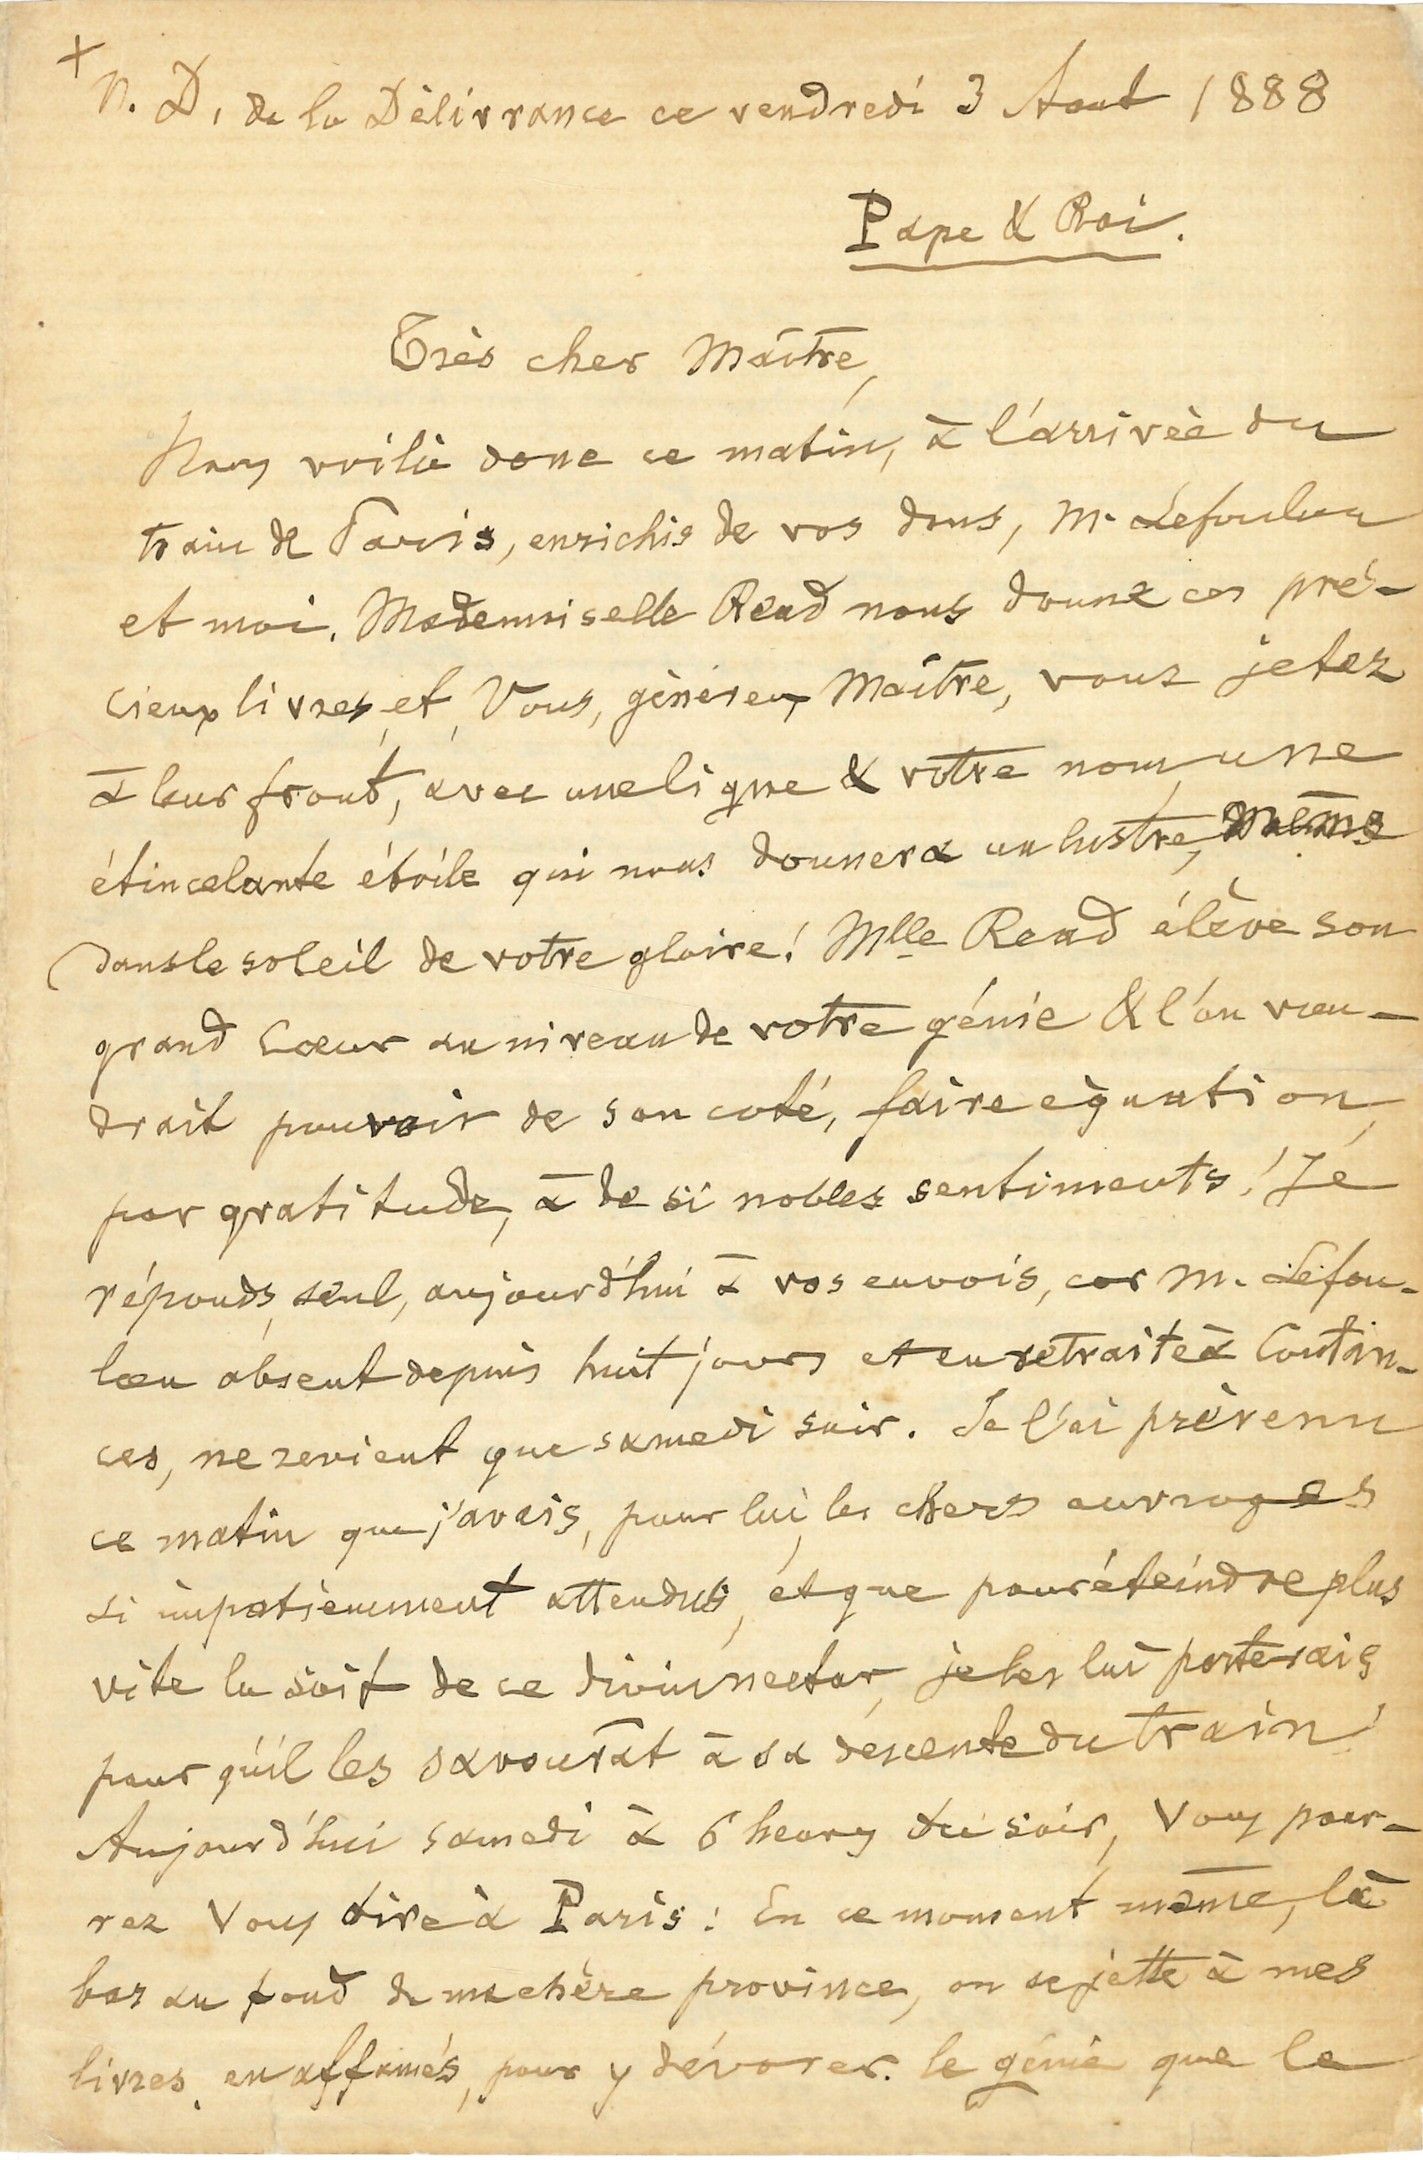 +
N. D. de la Délivrance ce vendredi 3 Aout 1888
Pape & Roi.
Très cher Maître,
Nous voilà donc ce matin, à l'arrivée du
train de Paris, enrichis de vos dons, M. Lefoulon
et moi. Mademoiselle Read nous donne ces pré-
cieux livres, et, Vous, généreux Maître, vous jetez
à leur front, avec une ligne & votre nom, une
étincelante étoile qui nous donnera un lustre, même
dans le soleil de votre gloire! Mlle Read élève son
grand Coeur au niveau de votre génie & l'on vou-
drait pouvoir de son coté, faire équation,
par gratitude, à de si nobles sentiments! Je
réponds, seul, aujourd'hui à vos envois, car M. Lefou-
lon absent depuis huit jours et en retraite à Coutan-
ces, ne revient que samedi soir. Je l'ai prévenu
ce matin que j'avais, pour lui, les chers ouvrages
si impatiemment attendus, et que pour éteindre plus
vite la soif de ce divin nectar, je les lui porterais
pour qu'il les savourât à sa descente du train!
Aujourd'hui samedi à 6 heures du soir, Vous pour-
rez Vous dire à Paris: En ce moment même, là
bas au fond de ma chère province, on se jette à mes
livres, en affamés, pour y dévorer le génie que le